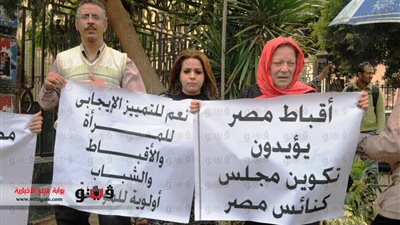 أقباط مصر
يؤيدون
تكوين مجلس
كنائس مصر
نعم للتمييز الإيجابي
للمرأة
والأقباط
والشباب
أولوية
ڤيتو
بوابة فيتو الإخبارية
www.vetogate.com